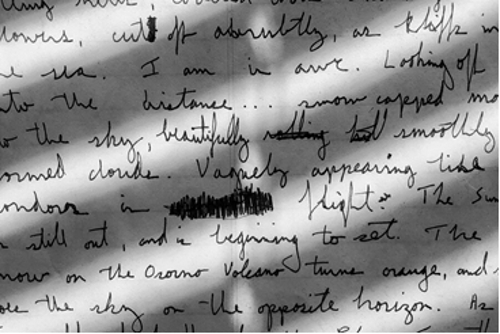 lowers, cut off abruptly, as bluffs in
sea. I am in awe. Looking off
the distance... snow capped
the sky, beautifully rolling smoothly
clouds. Vaguely appearing like
in flight. The Sun
still out, and is beginning to set. The
on the Osorno Volcano turns orange, and
the sky on the opposite horizon. As